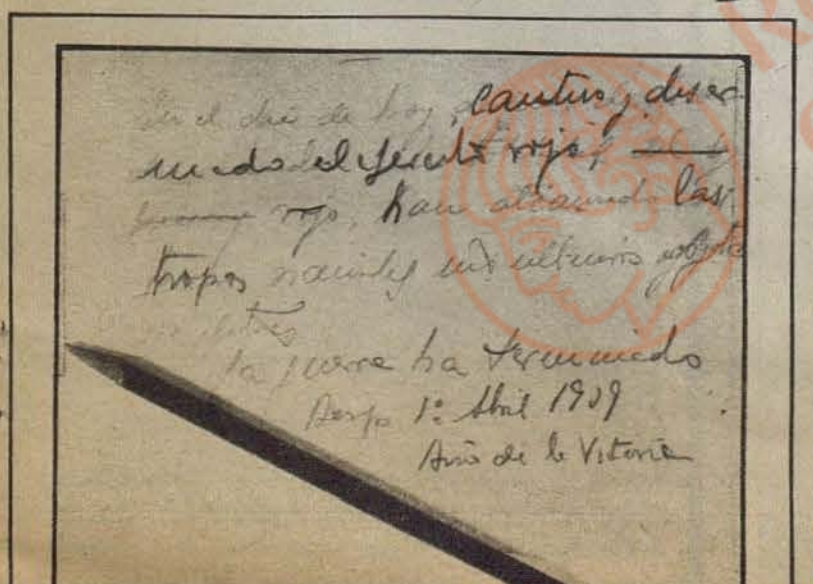 En el día de hoy, cautivo y desar
mado el Ejercito rojo,
rojo, han alcanzado las
tropas nacionales sus ultimos objetivos
militares
la guerra ha terminado
Burgos 1º Abril 1939
Año de la Vitoria